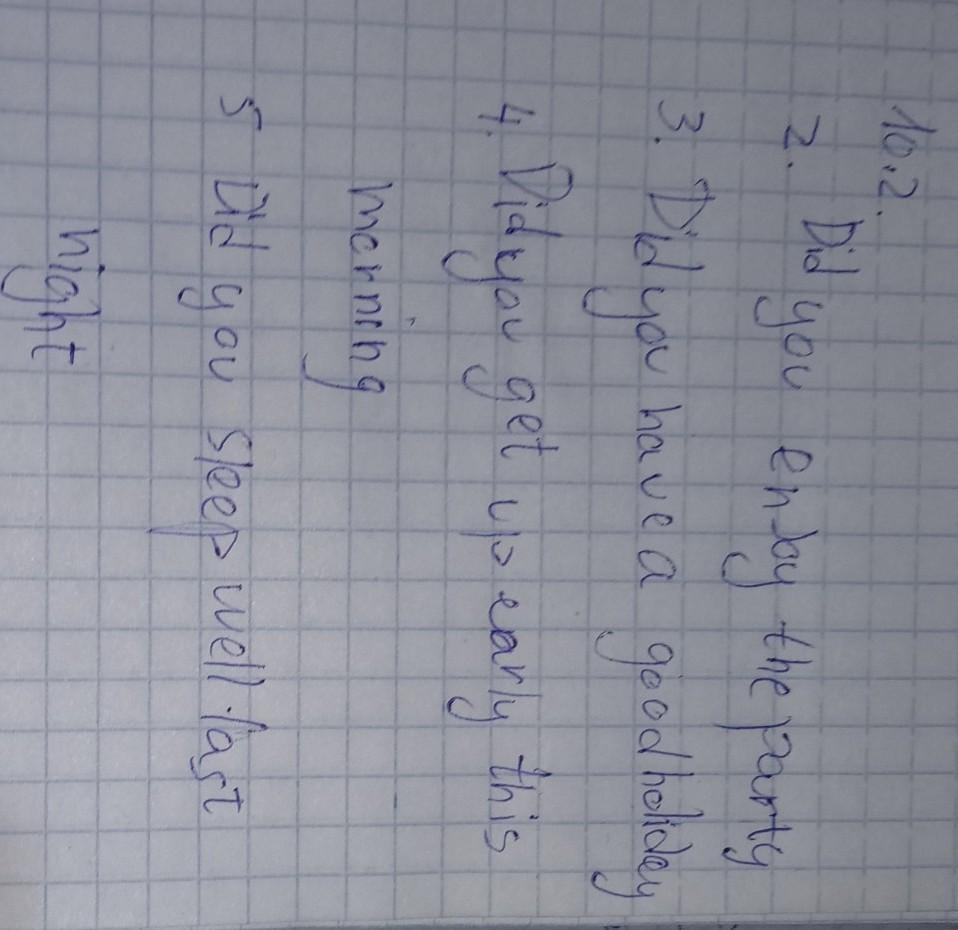 10.2.
2. Did you enjoy the party
3. Did you have a good holiday
4. Did you get up early this
morning
5 Did you sleep well last
night